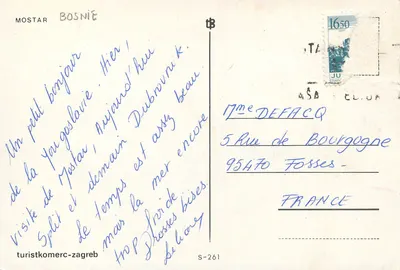 MOSTAR BOSNIE
Un petit bonjour
de la Yougoslavie. Hier,
visite de Mostar, Aujourd'hui
Split et demain Dubrovnik.
Le temps est assez beau
mais la mer encore
trop froide
Grosses bises
turistkomerc-zagreb
S-261
16,50
Mme DEFACQ
5 Rue de Bourgogne
95470 Fosses-
FRANCE